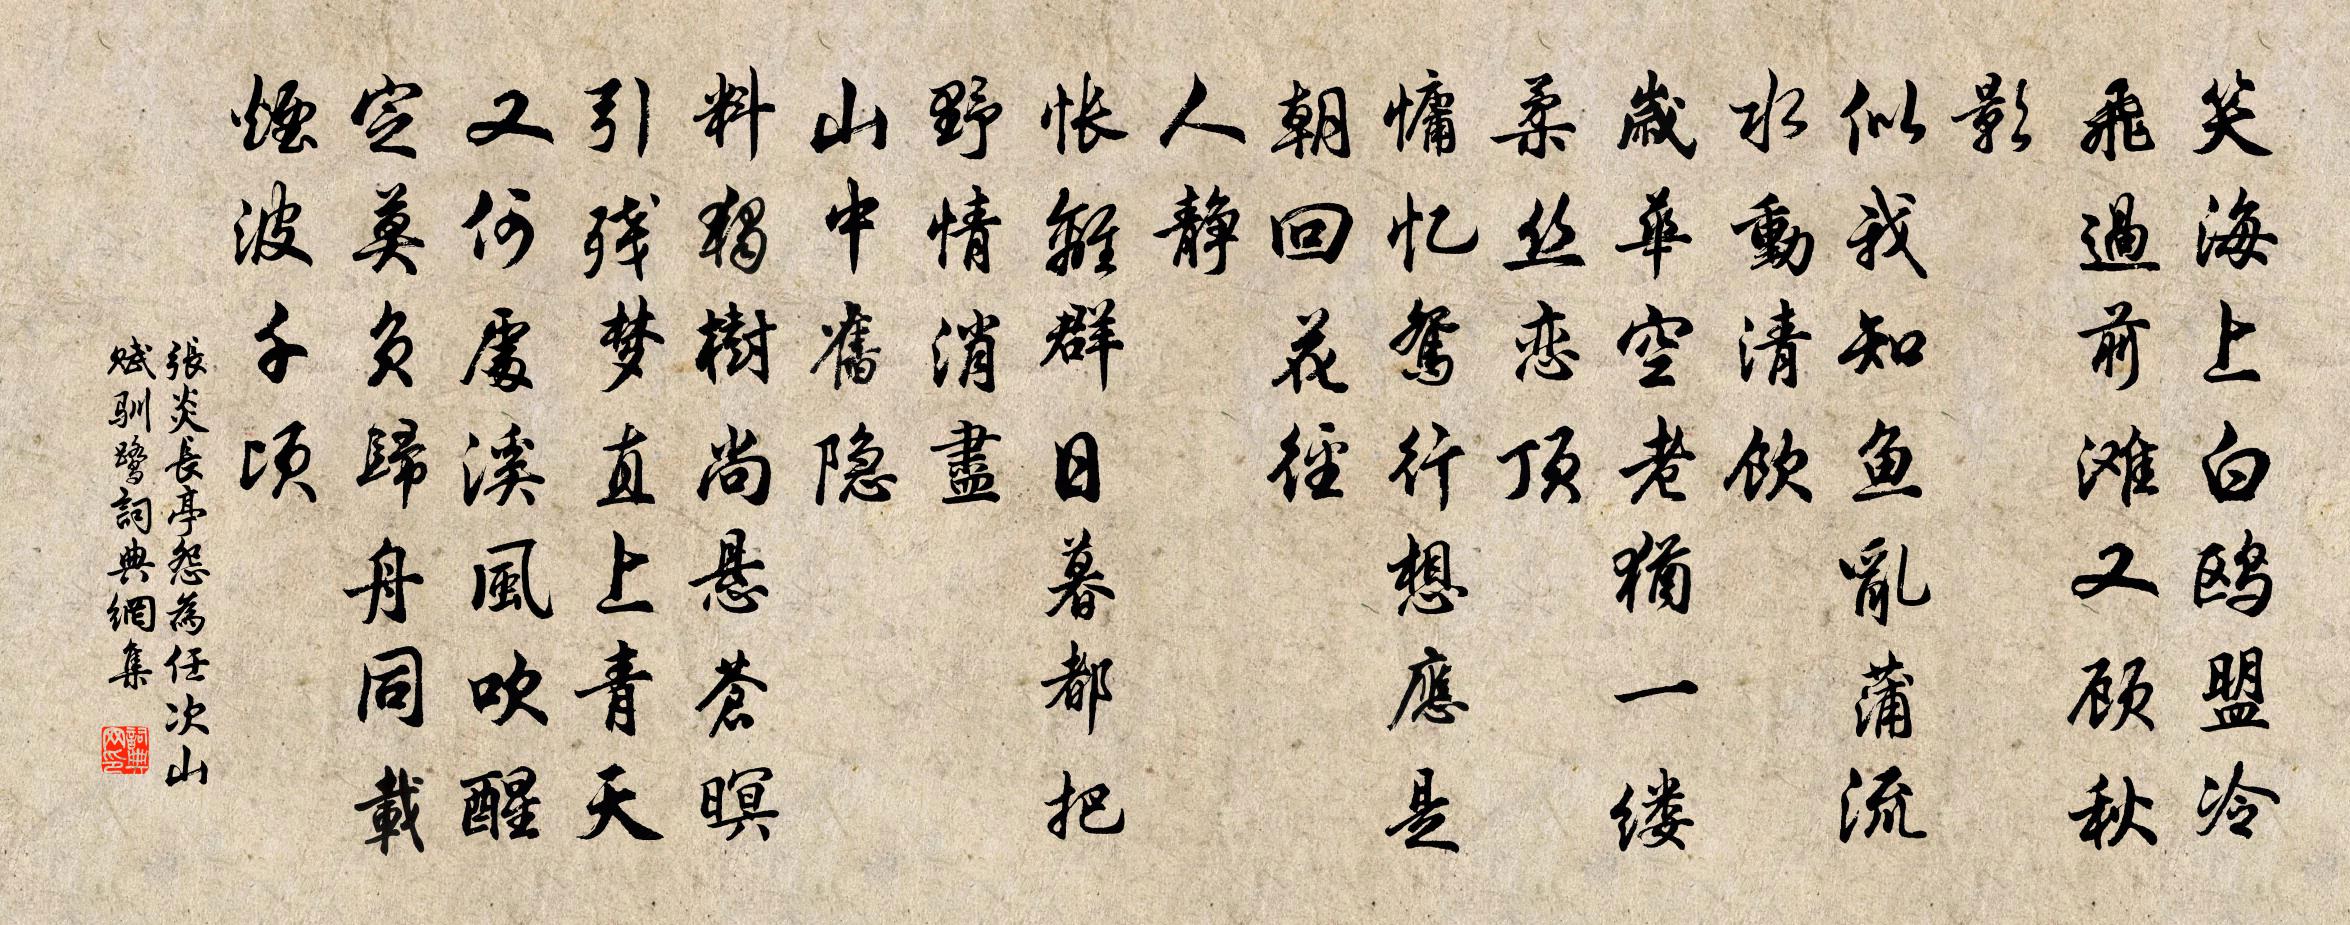 笑海上白鸥盟冷
飛過前滩又顾秋
影
似我知鱼亂蒲流
水動清飲
歲華空老猶一缕
柔丝恋顶
慵忆鴛行想應是
朝回花徑
人静
怅離群日暮都把
野情消盡
山中舊隐
料獨樹尚悬蒼暝
引残梦直上青天
又何處溪風吹醒
定莫负歸舟同載
煙波千顷
張炎長亭怨為任次山
赋驯鹭詞典網集
詞典网印